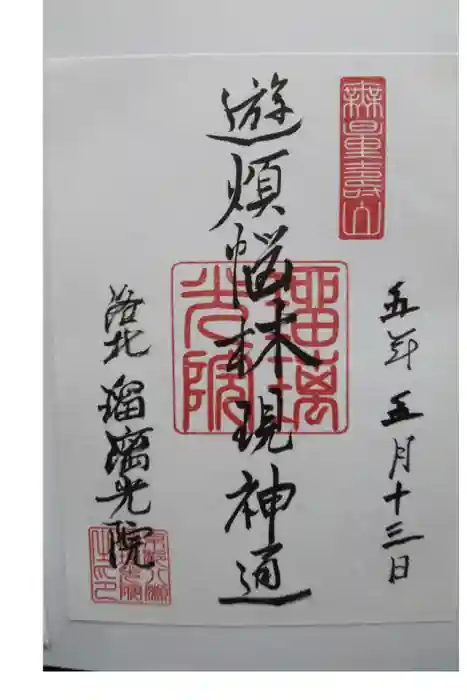 無量壽山
五年五月十三日
遊煩悩林現神通
瑠璃光院
洛北 瑠璃光院